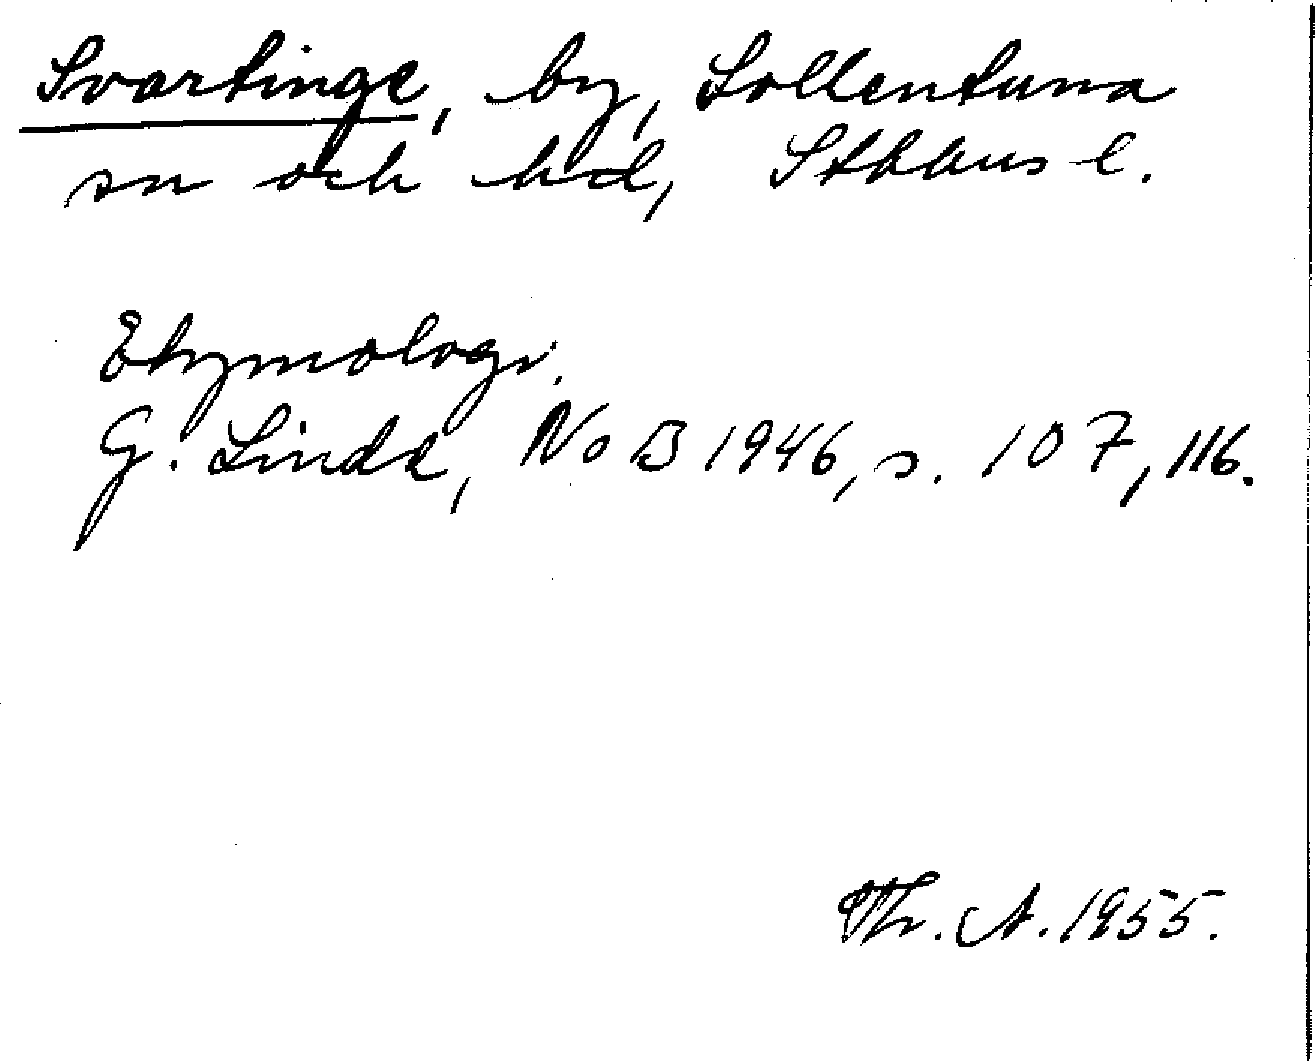 Svartinge, by, Sollentuna
sn och hd, Sthlms l.
Etymologi.
G. Linde, NoB 1946, s. 107, 116.
Th. A. 1955.